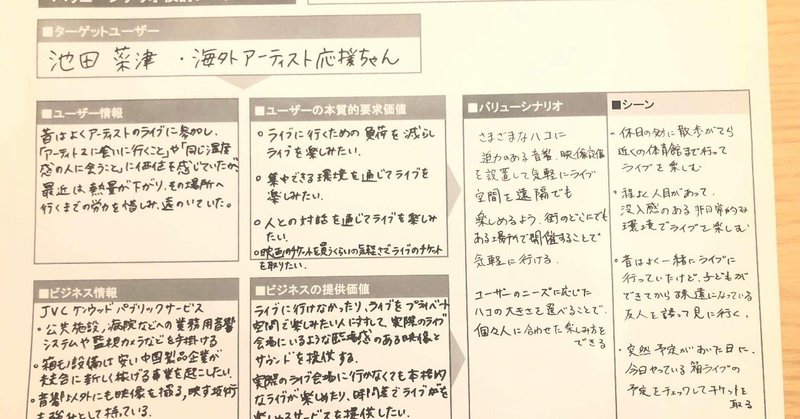 ■ターゲットユーザー
池田 菜津 ・海外アーティスト応援ちゃん
■ユーザー情報
昔はよくアーティストのライブに参加し、
「アーティストに会いに行くこと」や「同じ温度
感の人に会うこと」に価値を感じていたが
最近は熱量が下がり、その場所へ
行くまでの労力を惜しみ、遠のいていた。
■ユーザーの本質的要求価値
○ ライブに行くための負荷を減らし
ライブを楽しみたい。
○ 集中できる環境を通じてライブを
楽しみたい。
○ 人との対話を通じてライブを楽しみ
たい。
○ 映画のチケットを買うくらいの気軽さでライブのチケット
を取りたい。
■バリューシナリオ
さまざまなハコに
迫力のある音響、映像設備
を設置して気軽にライブ
空間を遠隔でも
楽しめるよう、街のどこにでも
ある場所で開催することで
気軽に行ける。
ユーザーのニーズに応じた
ハコの大きさを選べることで、
個々人に合わせた楽しみ方を
できる
■シーン
・休日の幼に散歩がてら
近くの体育館まで行って
ライブを楽しむ
・程よく人目があって、
没入感のある非日常的な
環境でライブを楽しむ
・昔はよく一緒にライブに
行っていたけど、子どもが
できてから疎遠になっている
友人を誘って見に行く。
・突然予定があいた日に、
今日やっている箱ライブの
予定をチェックしてチケットを
取る
■ビジネス情報
JVCケンウッドパブリックサービス
・公共施設、病院などへの業務用音響
システムや監視カメラなどを手掛ける
・箱モノ設備は安い中国製品企業が
新しく稼げる事業を起こしたい。
・音響以外にも映像を撮る、映す技術
を強みとして持っている。
■ビジネスの提供価値
ライブに行けなかったり、ライブをプライベート
空間で楽しみたい人に対して、実際のライブ
会場にいるような臨場感のある映像と
サウンドを提供する。
実際のライブ会場に行かなくても本格的
なライブが楽しめたり、時間差でライブが
楽しめるサービスを提供したい。